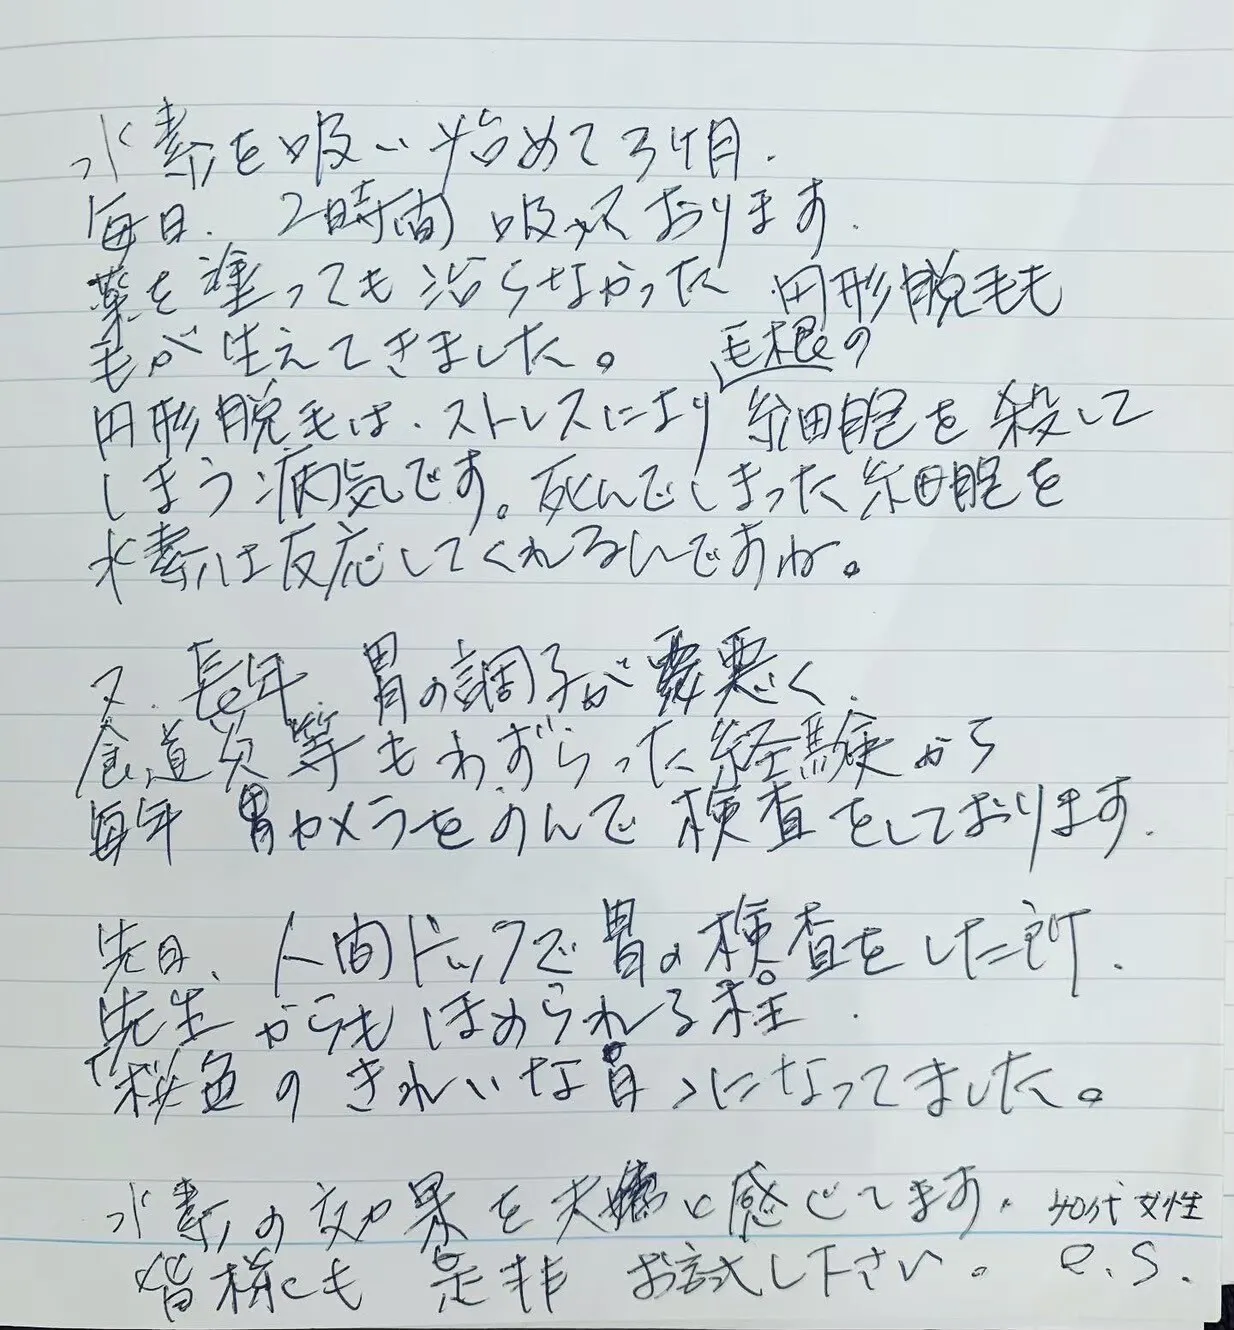 水素を吸い始めて3ヶ月.
毎日. 2時間吸っております.
薬を塗っても治らなかった 円形脱毛も
毛が生えてきました。 毛根の
円形脱毛は. ストレスにより細胞を殺して
しまう病気です。死んでしまった細胞を
水素は反応してくれるんですね。
又. 長年 胃の調子が悪く
食道炎等もわずらった経験から
毎年 胃カメラをのんで検査をしております.
先日、人間ドックで胃の検査をした所.
先生からもほめられる程.
「桜色のきれいな胃」になってました。
水素の効果を夫婦で感じてます. 40代 女性
皆様にも 是非 お試し下さい。 e.S.